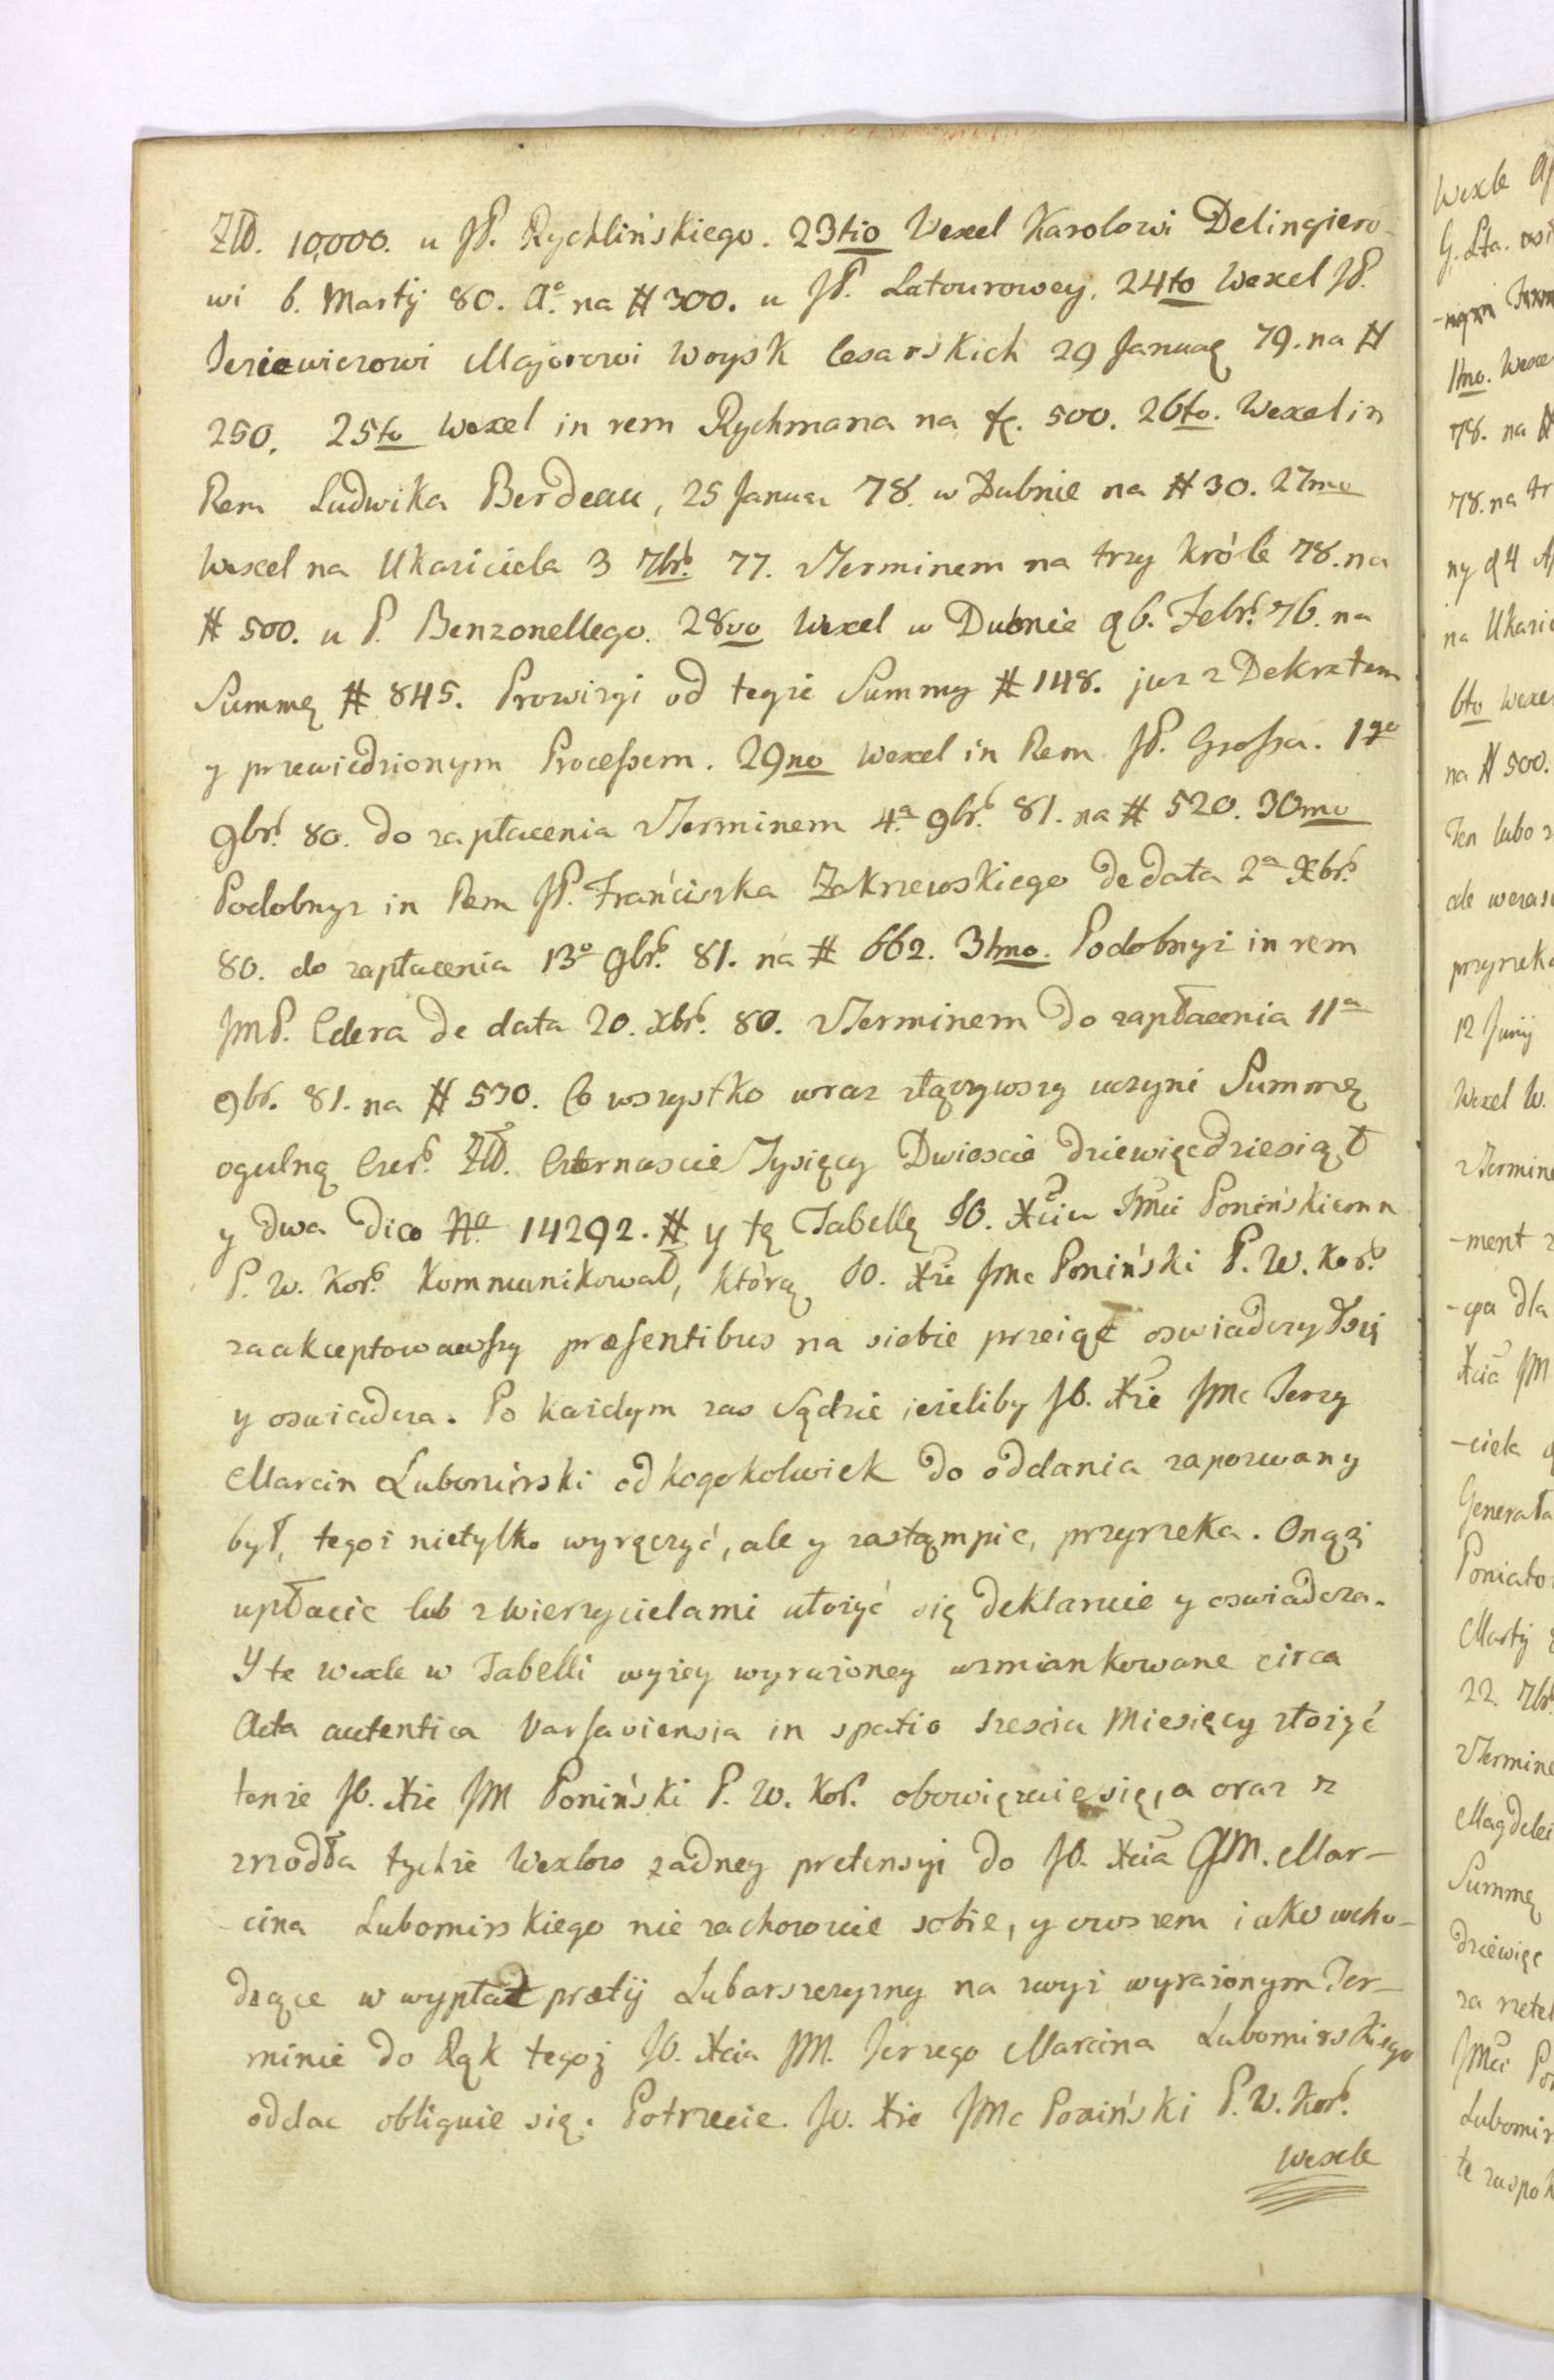 Złł. 10,000. u JP. Rychlińskiego. 23tio Wexel Karolowi Delingiero-
wi 6. Martij 80. Ao. na # 300. u JP. Latourowey. 24to Wexel JP.
Jeziewiczowi Majorowi Woysk Cesarskich 29 January 79. na #
250. 25to Wexel in rem Rychmana na 500. 26to. Wexel in
Rem Ludwika Berdeau, 25 Januar 78. w Dubnie na # 30. 27mo
Wexel na Ukaziciela 3 7br. 77. z Terminem na trzy króle 78. na
# 500. u P. Benzonellego. 28vo Wexel w Dubnie d 6. Febr. 76. na
Summę # 845. Prowizyi od teyże Summy # 148. juz z Dekretem
y przewiedzionym Processem. 29no Wexel in Rem JP. Grossa. 19o
9br. 80. do zapłacenia z Terminem 4a 9br. 81. na # 520. 30mo
Podobnyz in Rem JP. Frańciszka Zakrzewskiego de data 2a Xbr.
80. do zapłacenia 13o 9br. 81. na # 662. 31mo. Podobnyż in rem
JmP. Edera de data 20. Xbr. 80. z Terminem do zapłacenia 11a
9br. 81. na # 530. Co wszystko wraz złączywszy uczyni Summę
ogulną Czer. Złł. Czternascie Tysięcy Dwiescie dziewięcdziesiąt
y dwa dico No 14292. # y tę Tabellę JO. Xciu Jmci Ponińskiemu
P. W. Kor. kommunikował, którą JO. Xże Jmc Poniński P. W. Kor.
zaakceptowawszy præsentibus na siebie przeiąć oswiadczył się
y oswiadcza. Po każdym zas Sądzie jeżeliby JO. Xże Jmc Jerzy
Marcin Lubomirski od kogokolwiek do oddania zapozwany
był, tegoż nietylko wyręczyć, ale y zastąmpic, przyrzeka. Onąż
upłacic lub z wierzycielami ułożyć się deklaruie y oswiadcza.
Y te wexle w Tabelli wyżey wyrażoney wzmiankowane circa
Acta autentica Varsaviensia in spatio szesciu Miesięcy złożyć
tenże JO. Xże JM Poniński P. W. Kor. obowięzuie się, a oraz z
zrzodła tychże Wexlow żadney pretensyi do JO. Xcia JM. Mar-
cina Lubomirskiego nie zachowuie sobie, y owszem iako wcho-
dzące w wypłat prætij Lubarszczyzny na zwyż wyrażonym Ter-
minie do Rąk tegoż JO. Xcia JM. Jerzego Marcina Lubomirskiego
oddac obliguie się. Potrzecie. JO. Xże Jmc Poniński P. W. Kor.
Wexle